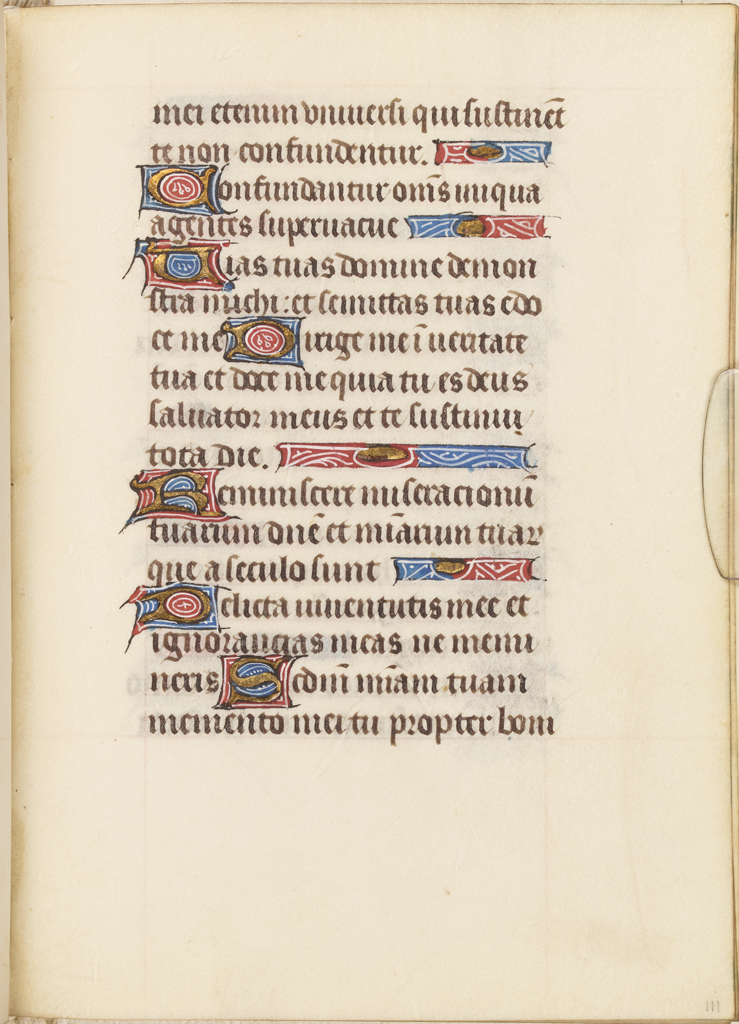 mei etenim vniuersi qui sustinēt
te non confundentur.
Confundantur om̄s iniqua
agentes superuacue
Uias tuas domine demon
stra michi: et semittas tuas edo
ce me Dirige me ī ueritate
tua et doce me quia tu es deus
saluator meus et te sustinui
tota die.
Reminiscere miseracionū
tuarum dn̄e et mīarium tuar
que a seculo sunt
Delicta iuuentutis mee et
ignorancias meas ne memi
neris Sedm̄ mīam tuam
memento mei tu propter boni